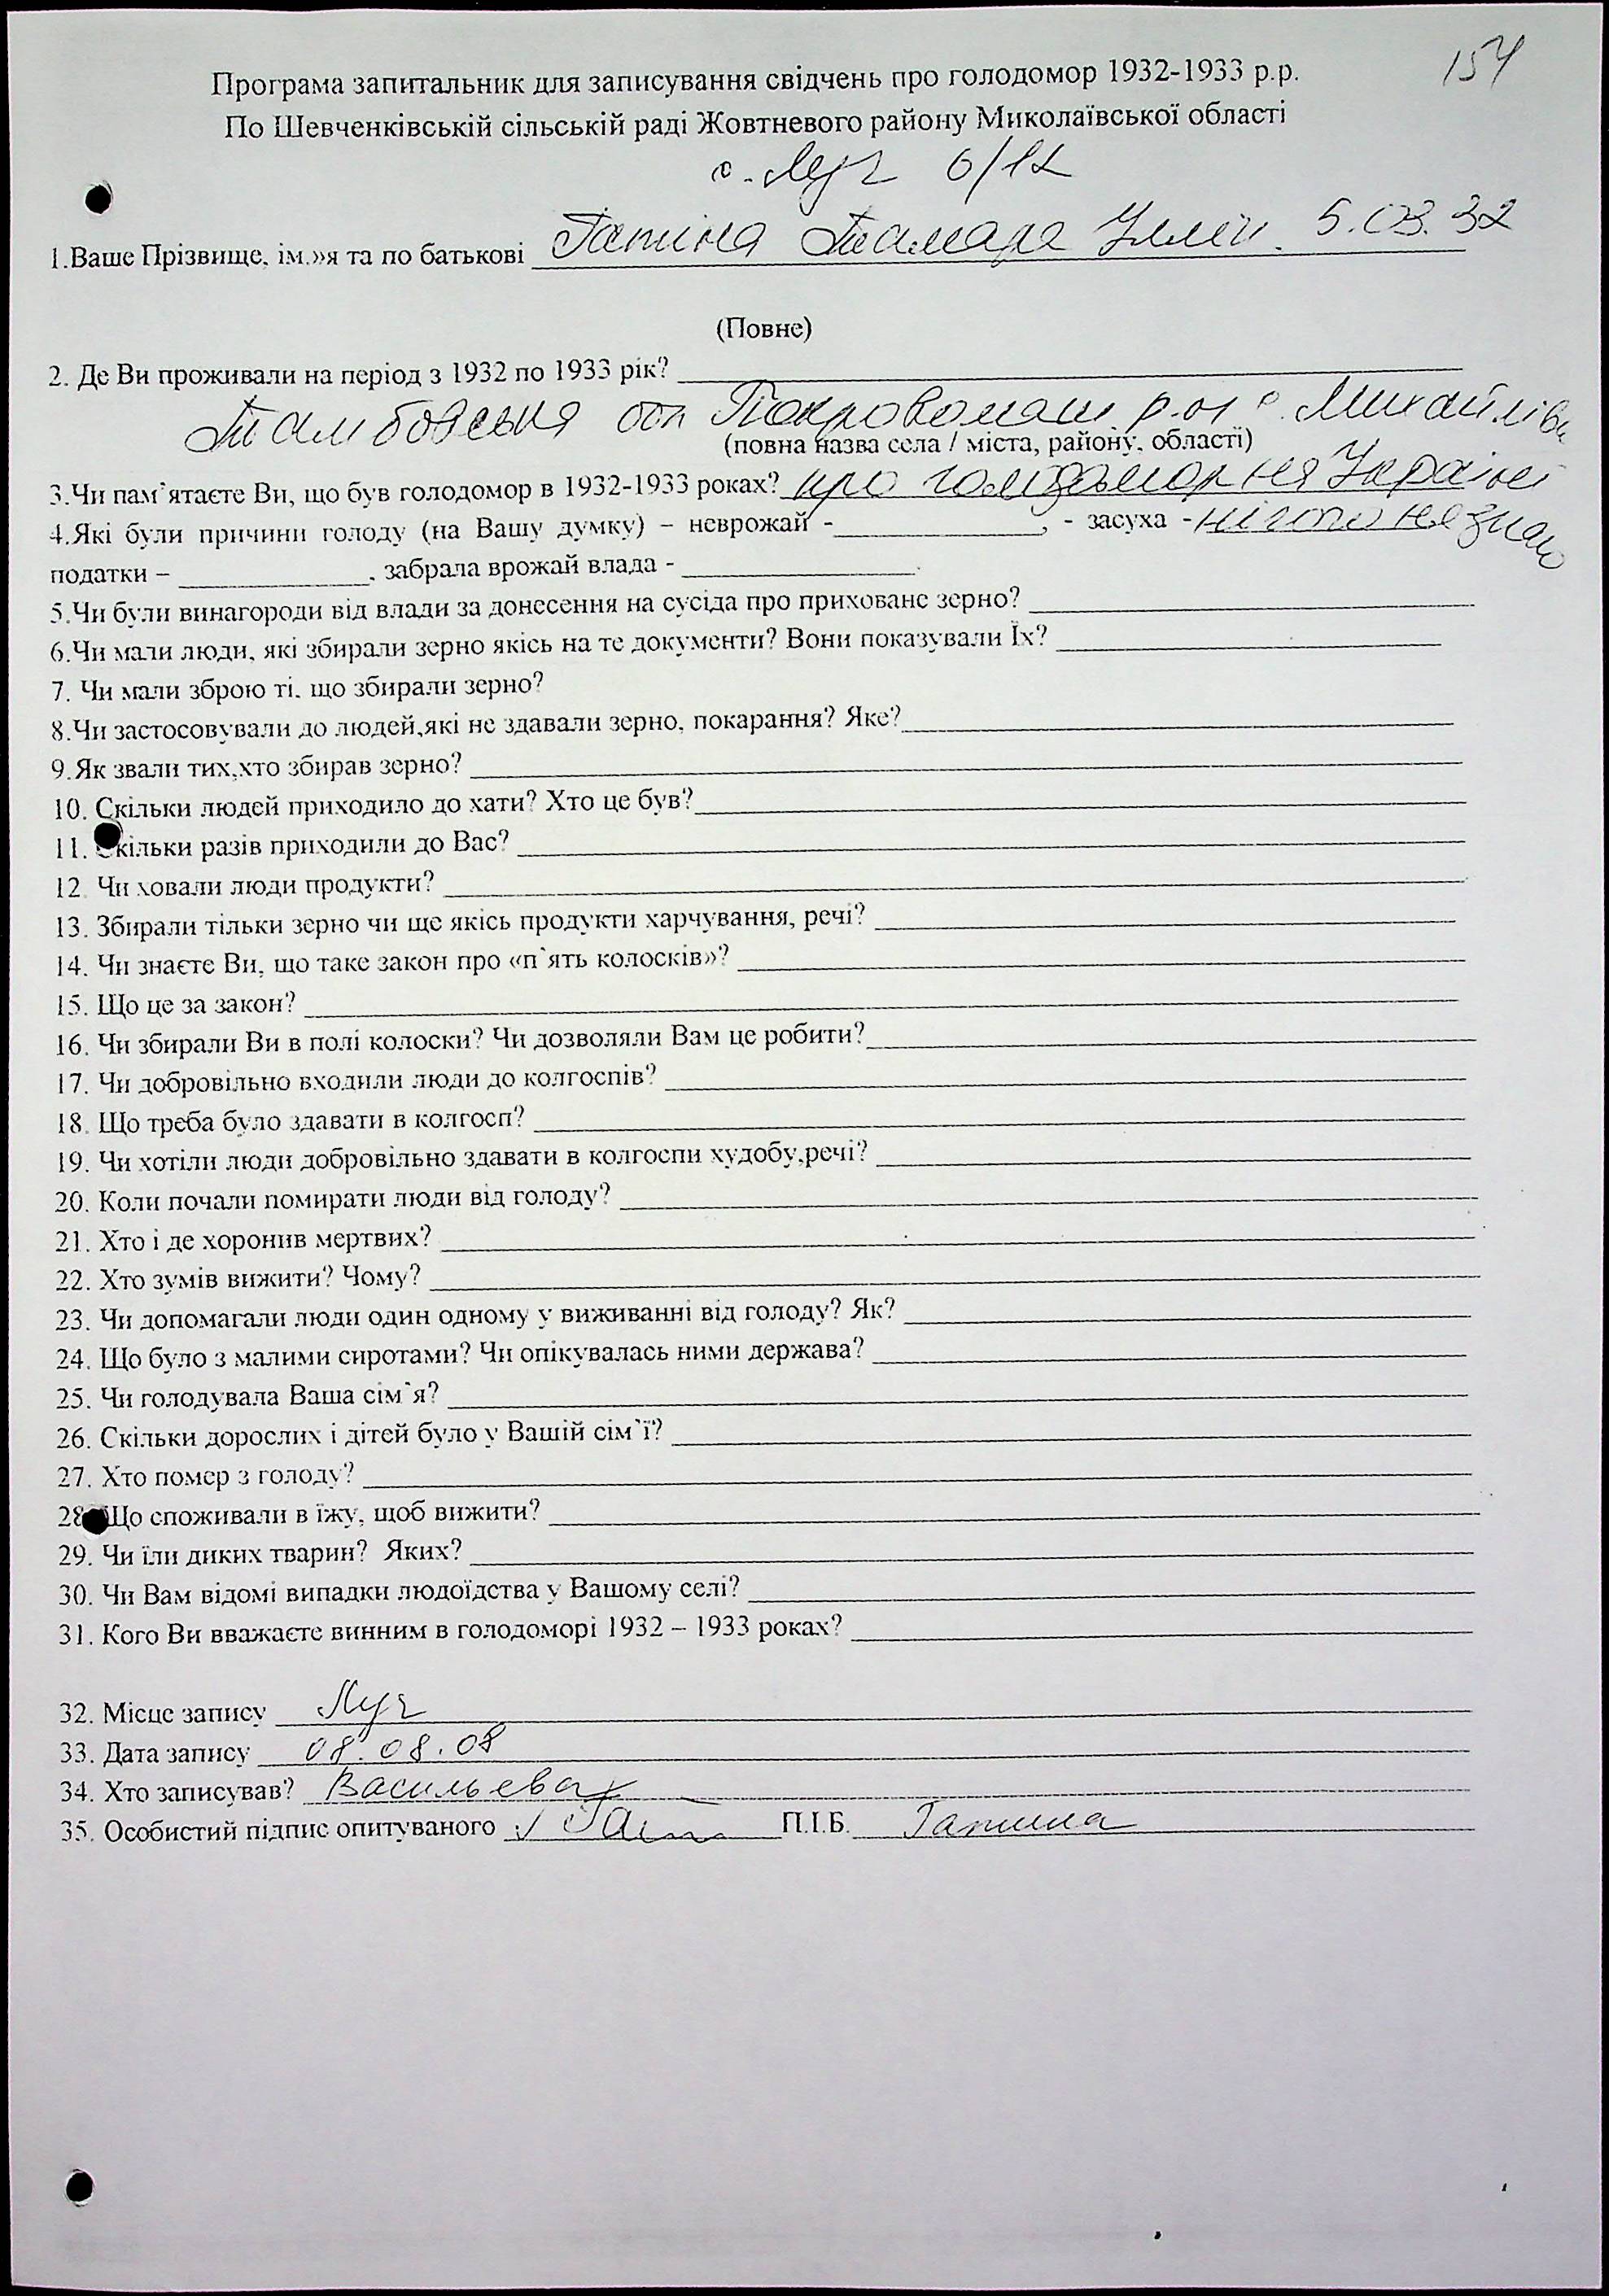 154
Програма запитальник для записування свідчень про голодомор 1932-1933 р.р.
По Шевченківській сільській раді Жовтневого району Миколаївської області
с. Луч 6/12
1.Ваше Прізвище, ім.»я та по батькові Гапіна Тамара Ілліч. 5.03.32
(Повне)
2. Де Ви проживали на період з 1932 по 1933 рік?
Тамбовська обл р-он с. Михайлівк
(повна назва села / міста, району, області)
3.Чи пам`ятаєте Ви, що був голодомор в 1932-1933 роках? про голодомор на Україні
4.Які були причини голоду (на Вашу думку) – неврожай - , - засуха - нічого не знаю
податки – , забрала врожай влада - .
5.Чи були винагороди від влади за донесення на сусіда про приховане зерно?
6.Чи мали люди, які збирали зерно якісь на те документи? Вони показували Їх?
7. Чи мали зброю ті, що збирали зерно?
8.Чи застосовували до людей,які не здавали зерно, покарання? Яке?
9.Як звали тих,хто збирав зерно?
10. Скільки людей приходило до хати? Хто це був?
11. Скільки разів приходили до Вас?
12. Чи ховали люди продукти?
13. Збирали тільки зерно чи ще якісь продукти харчування, речі?
14. Чи знаєте Ви, що таке закон про «п`ять колосків»?
15. Що це за закон?
16. Чи збирали Ви в полі колоски? Чи дозволяли Вам це робити?
17. Чи добровільно входили люди до колгоспів?
18. Що треба було здавати в колгосп?
19. Чи хотіли люди добровільно здавати в колгоспи худобу,речі?
20. Коли почали помирати люди від голоду?
21. Хто і де хоронив мертвих?
22. Хто зумів вижити? Чому?
23. Чи допомагали люди один одному у виживанні від голоду? Як?
24. Що було з малими сиротами? Чи опікувалась ними держава?
25. Чи голодувала Ваша сім`я?
26. Скільки дорослих і дітей було у Вашій сім`ї?
27. Хто помер з голоду?
28. Що споживали в їжу, щоб вижити?
29. Чи їли диких тварин? Яких?
30. Чи Вам відомі випадки людоїдства у Вашому селі?
31. Кого Ви вважаєте винним в голодоморі 1932 – 1933 роках?
32. Місце запису Луч
33. Дата запису 08.08.08
34. Хто записував? Васильева
35. Особистий підпис опитуваного П.І.Б. Гапина